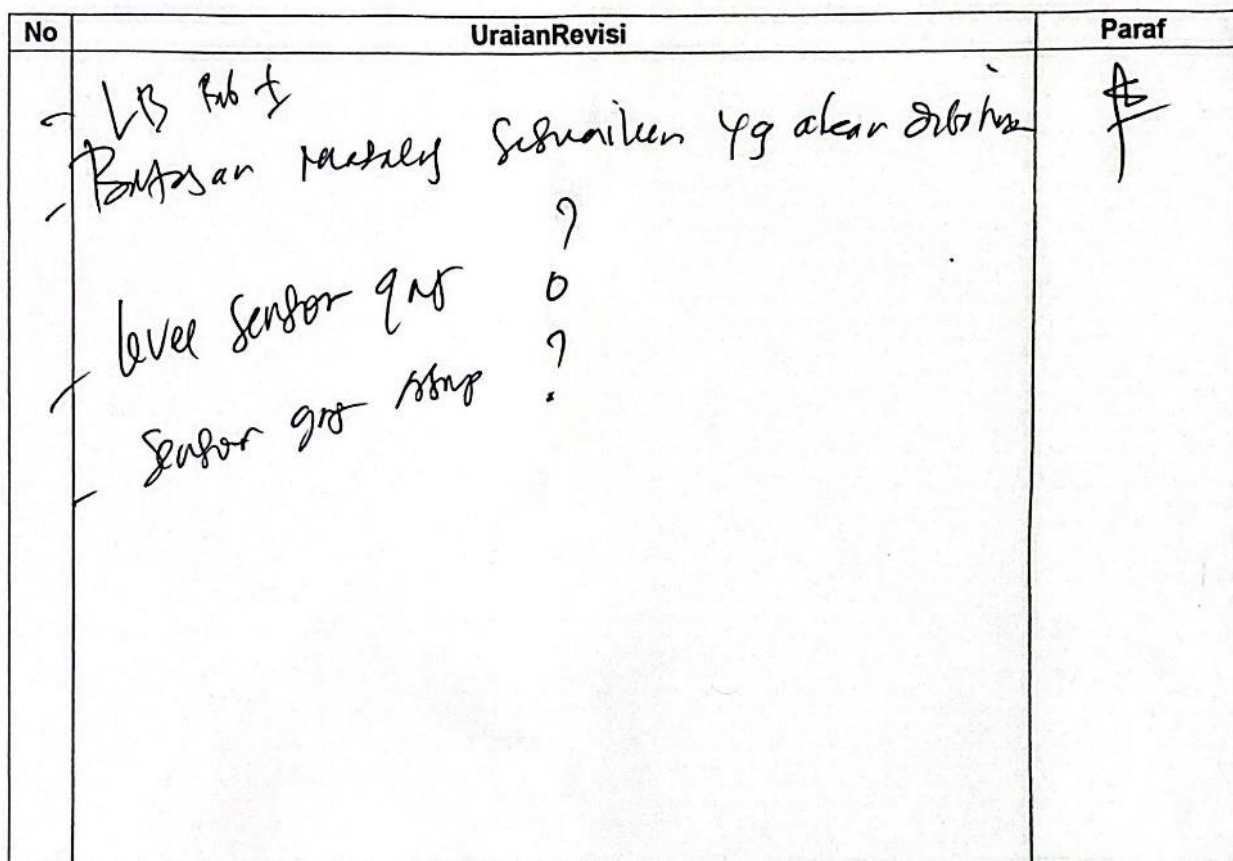 No UraianRevisi Paraf
- LB Bab I
- Batasan masalah sesuaikan yg akan dibahas
- level sensor gas ?
- sensor gas ?